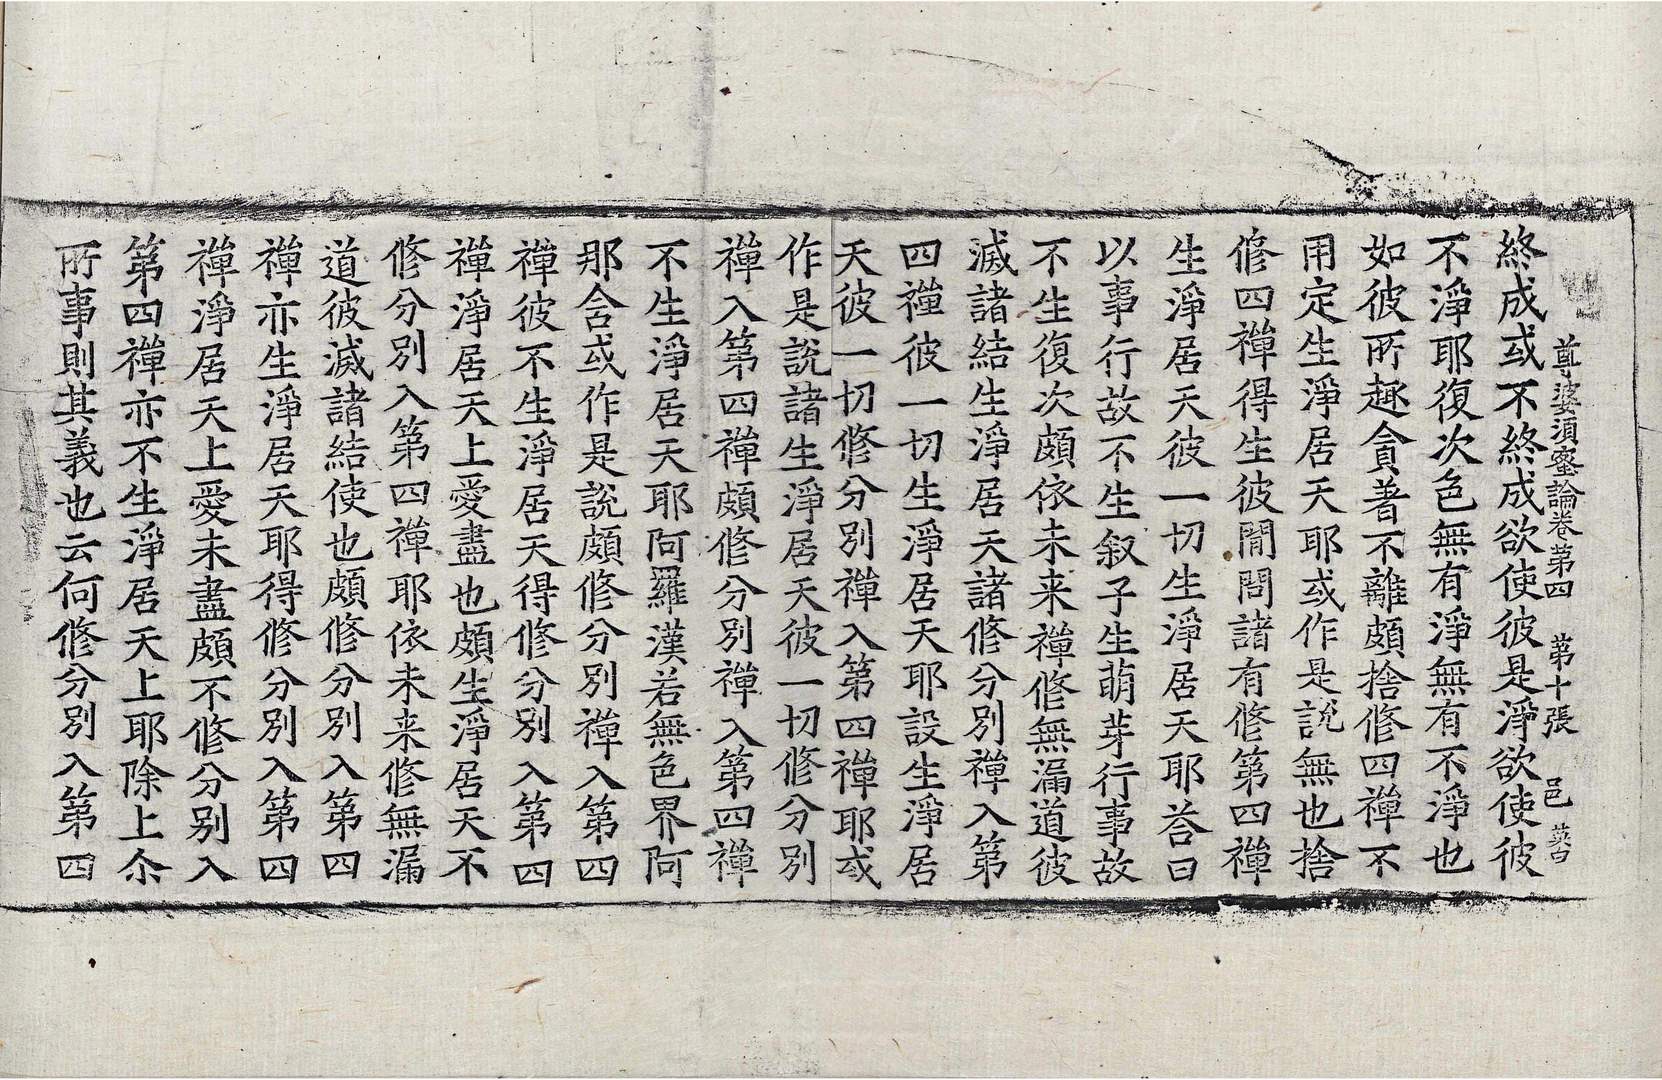 尊婆須蜜論卷第四 第十張 邑
終成或不終成欲使彼是淨欲使彼
不淨耶復次色無有淨無有不淨也
如彼所趣貪著不離頗捨修四禪不
用定生淨居天耶或作是說無也捨
修四禪得生彼閒問諸有修第四禪
生淨居天彼一切生淨居天耶荅曰
以事行故不生叙子生萌芽行事故
不生復次頗依未来禪修無漏道彼
滅諸結生淨居天諸修分別禪入第
四禪彼一切生淨居天耶設生淨居
天彼一切修分別禪入第四禪耶或
作是說諸生淨居天彼一切修分別
禪入第四禪頗修分別禪入第四禪
不生淨居天耶阿羅漢若無色界阿
那含或作是說頗修分別禪入第四
禪彼不生淨居天得修分別入第四
禪淨居天上愛盡也頗生淨居天不
修分別入第四禪耶依未来修無漏
道彼滅諸結使也頗修分別入第四
禪亦生淨居天耶得修分別入第四
禪淨居天上愛未盡頗不修分別入
第四禪亦不生淨居天上耶除上尒
所事則其義也云何修分別入第四